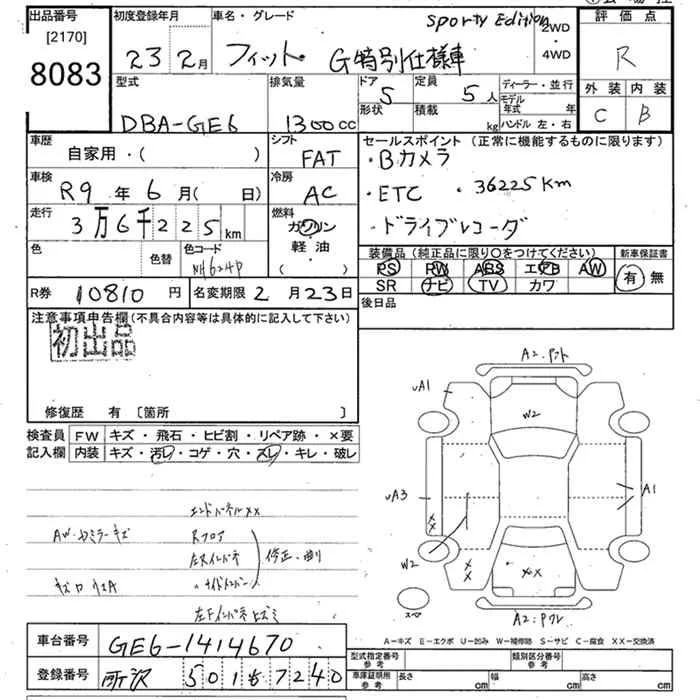 出品番号
[2170]
8083
初度登録年月
23 2月
車名・グレード
フィット G特別仕様車
Sporty Edition
2WD
4WD
評価点
R
外装 内装
C B
型式
DBA-GE6
排気量
1300cc
ドア
5
定員
5人
形状
積載
kg
ディーラー・並行
モデル年式 年
ハンドル 左・右
車歴
自家用・( )
シフト
FAT
車検
R9年6月( 日)
冷房
AC
走行
3万6千225km
燃料
ガソリン
軽油
( )
色
色替
色コード
NH624P
セールスポイント(正常に機能するものに限ります)
・Bカメラ
・ETC ・36225Km
・ドライブレコーダ
装備品(純正品に限り○をつけてください)
新車保証書
PS PW ABS エアB AW
SR ナビ TV カワ
有 無
R券 10810円
名変期限 2月23日
後日品
注意事項申告欄(不具合内容等は具体的に記入して下さい)
初出品
修復歴 有 〔箇所 〕
検査員記入欄
FW キズ・飛石・ヒビ割・リペア跡・×要
内装 キズ・汚レ・コゲ・穴・スレ・キレ・破レ
エンドパネルXX
AW・ミラーキズ
Rフロア
左Rインパネ
修正・曲り
サイドメンバー
左Fインパネヒズミ
A2・Fフト
uA1
W2
uA3
A1
XX
W2
XX
XX
スペア
A2:Rワレ
A-キズ E-エクボ U-凹み W-補修跡 S-サビ C-腐食 XX-交換済
車台番号
GE6-1414670
登録番号
所沢 501 さ 7240
型式指定番号
参考
類別区分番号
参考
車庫証明用
参考
長さ cm
幅 cm
高さ cm